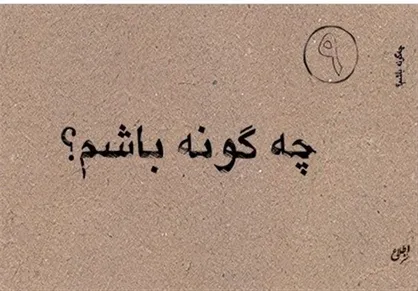 ۹
چگونه باشم؟
چه گونه باشم؟